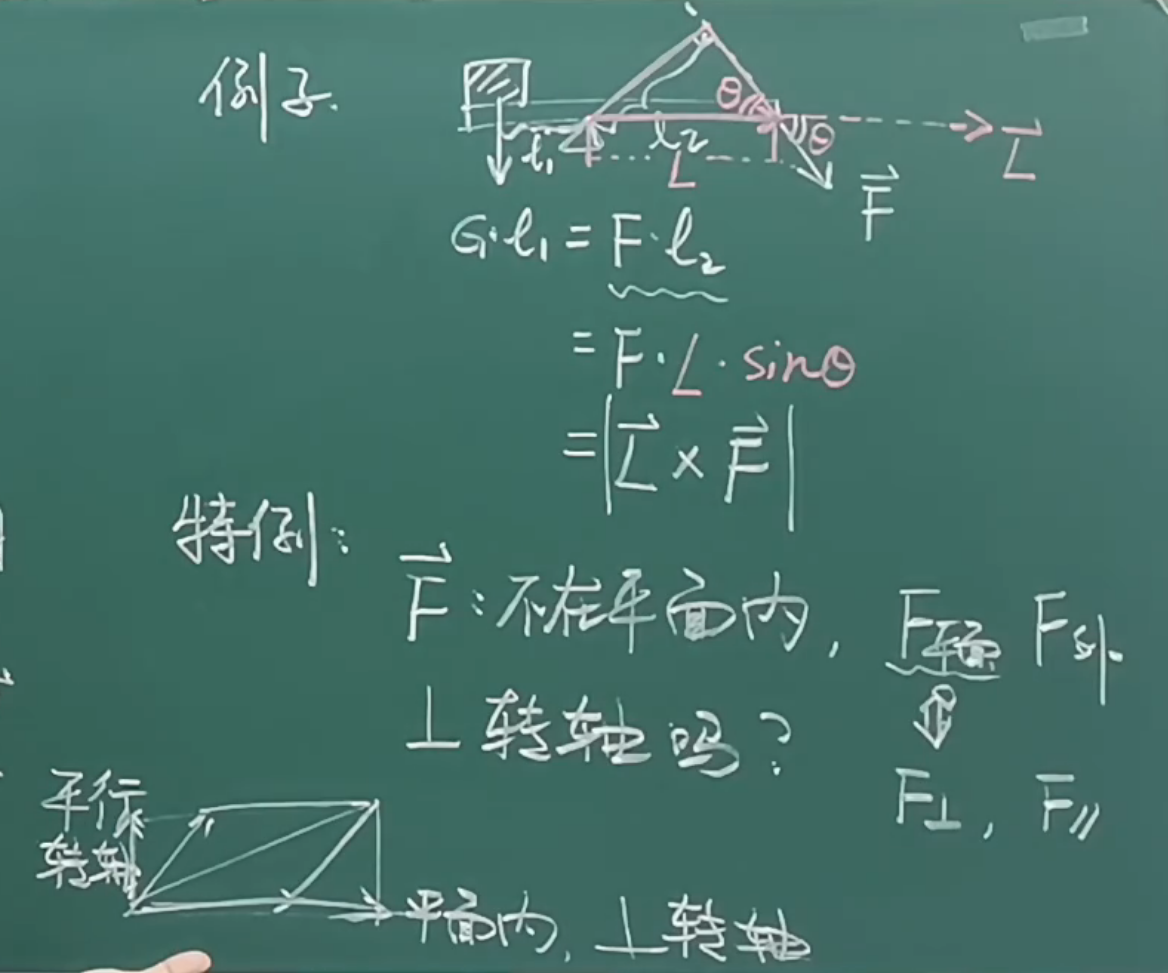 例子.
θ
l₁ l₂ θ L⃗
L
F⃗
G·l₁ = F·l₂
= F·L·sinθ
= |L⃗ × F⃗|
特例:
F⃗:不在平面内, F平面 F外
⊥转轴吗?
F⊥, F∥
平行
转轴
平面内, ⊥转轴